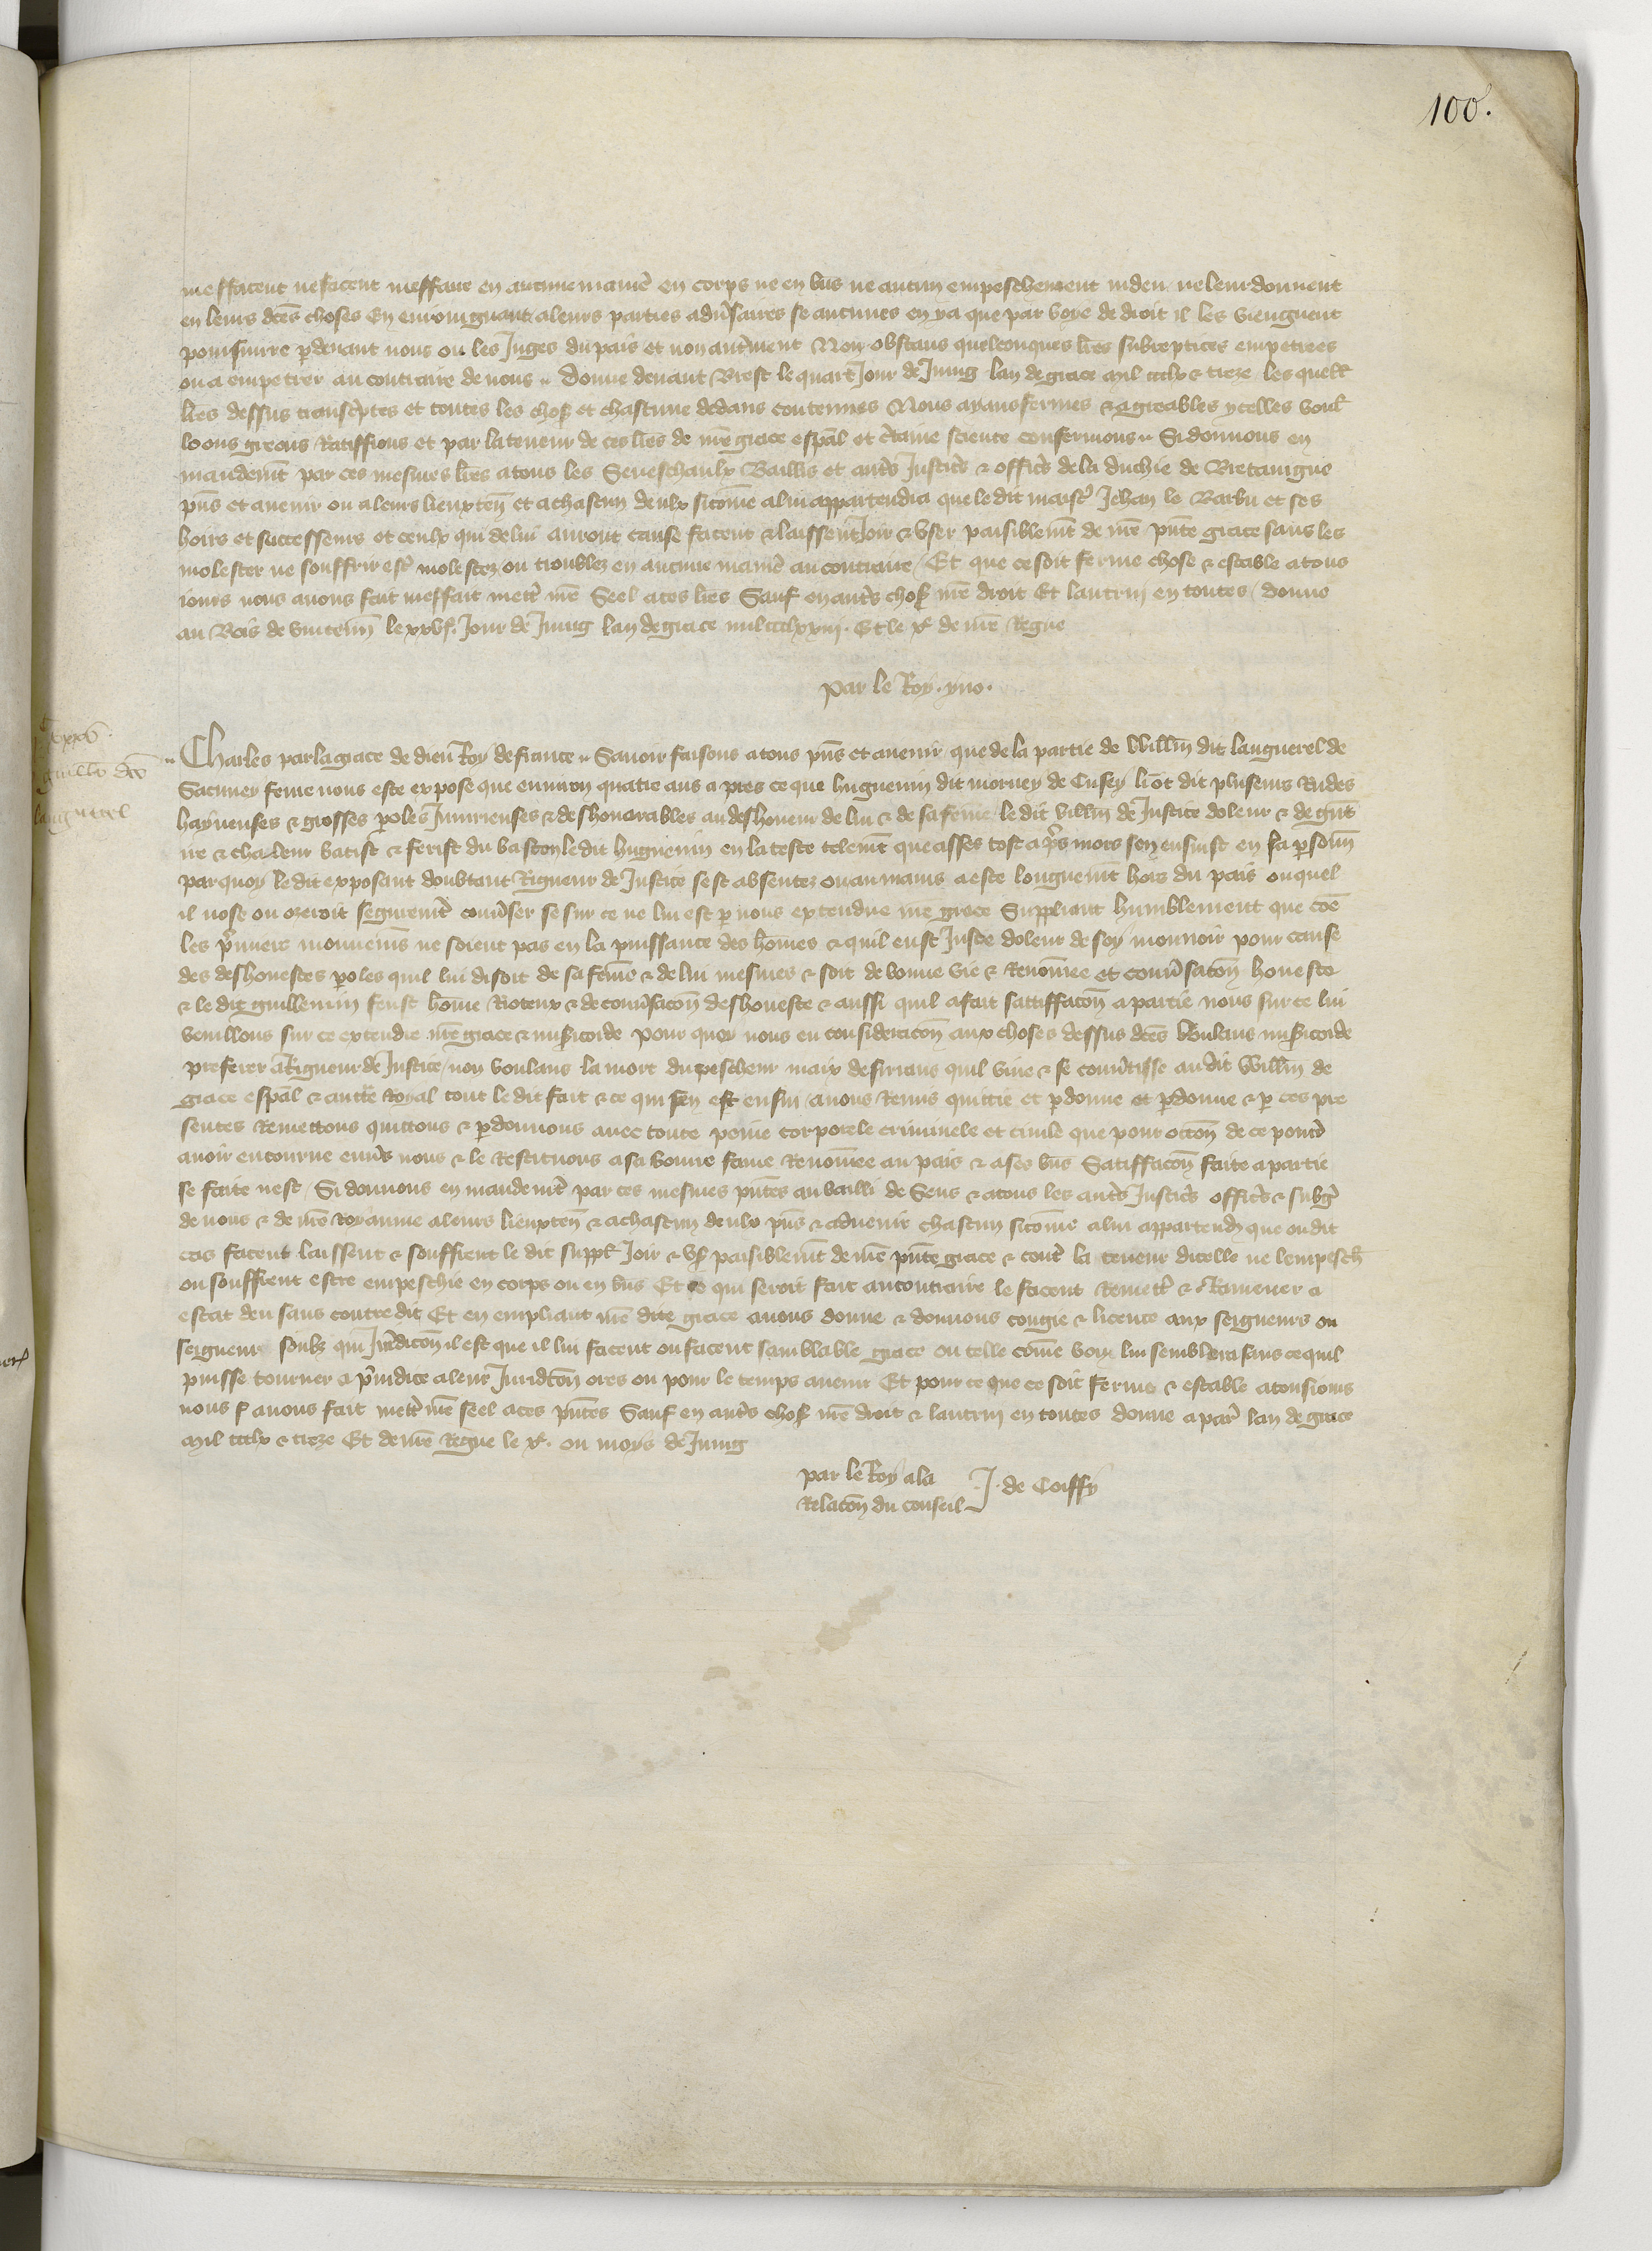 100.
meffacent ne facent meffaire en aucune manie͛ en corps ne en bn̄s ne aucun empeschement indeu ne leur donnent
en leurs dc̄es choses En enioingnant a leurs parties adūsaires se aucunes en ya que par voye de droit il les viengnent
poursuirre ꝑdeuant nous ou les Juges du pais et non aut̄ment Non obstans quelconques lr̄es subreptices empetrees
ou a empetrer au contraire de nous Donne deuant Brest le quart Jour de Juing lan de grace mil ccclx & treze les quell̄
lr̄es dessus transcͥptes et toutes les choſ et chascune dedans contenues Nous aians fermes & agreables ycelles voul̄
loons greons Ratiffions et par la teneur de ces lr̄es de nr̄e grace esp̄al et c̄taine science confermons Si donnons en
mandemt̄ par ces mesmes lr̄es a tous les Seneschaulx Baillis et aut̄s Justic̄s & offic̄s de la duchie de Bretaingne
pn̄s et auenir ou a leurs lieuxten̄ et a chascun deulx sicōme a lui appartendra que le dit maist̄ Jehan le Barbu et ses
hoirs et successeurs et ceulx qui de lui auront cause facent & laissent Joir & vser paisiblemt̄ de nr̄e pn̄te grace sans les
molester ne souffrir est̄ molestez ou troublez en aucune manie͛ au contraire Et que ce soit ferme chose & estable a tous
iours nous auons fait meffait mett̄ nr̄e Seel a ces lr̄es Sauf en aut̄s choſ nr̄e droit Et lautruj en toutes donne
au Bois de vincenn̄ le xxvj. Jour de Juing lan de grace mil ccclxxiij. Et le x͛ de nr̄e Regne
par le Roy . yuo .
guill̄o dc̄o
languerel
Charles par la grace de dieu Roy de france Sauoir faisons a tous pn̄s et auenir que de la partie de Willm̄ dit languerel de
Sacuney feme nous este expose que enuiron quatre ans a pres ce que huguenin dit morney de Cusey li ot dit plusieurs Rudes
hayneuses & grosses ꝑoles Jniurieuses & deshonorables au deshoneur de lui & de sa feme le dit villm̄ de Justice doleur & de gn̄t
ire & chaleur batist & ferist du baston le dit huguenin en la teste telemt̄ que asses tost apͬs mors sen ensuist en sa ꝑsonn̄
par quoy le dit exposant doubtant Rigueur de Justice sest absentez ou au mains a este longuemt̄ hors du pais ouquel
il nose ou oseroit seguremt̄ conūser se sur ce ne lui est ꝑ nous extendue nr̄e grace Suppliant humblement que cōe
les pͥmiers mouuemn̄s ne soient pas en la puissance des hōmes & quil eust Juste doleur de soy mouuoir pour cause
des deshonestes ꝑoles quil lui disoit de sa feme & de lui mesmes & soit de bonne vie & Renōmee et conūsacōn honeste
& le dit guillemin feust hōme Rioteux & de conūsacōn deshoneste & aussi quil a fait sattiffacōn a partie nous sur ce lui
veuillons sur ce extendre nr̄e grace & miſicorde Pour quoy nous en consideracōn aux choses dessus dc̄es voulans miſicorde
preferer a Rigueur de Justice non voulans la mort du pescheur maix desirrans quil viue & se conūtisse au dit Willm̄ de
grace esp̄al & auct̄e Royal tout le dit fait & ce qui sen est ensui auons Remis quittie et ꝑdonne et ꝑdonne & ꝑ ces pre
sentes Remettons quittons & ꝑdonnons auec toute peine corporele criminele et ciuile que pour occōn de ce pourr̄
auoir encourue enūs nous & le Restituons a sa bonne fame Renōmee au pais & a ses bn̄s Satiffacōn faite a partie
se faite nest Si donnons en mandemt̄ par ces mesmes pn̄tes au bailli de Sens & a tous les aut̄s Justic̄s offic̄s & subḡ
de nous & de nr̄e Royaume a leurs lieuxten̄ & a chascun deulx pn̄s & aduenir chascun sicōme a lui appartendͣ que ou dit
cas facent laissent & souffrent le dit suppl̄ Joir & vſ paisiblemt̄ de nr̄e pn̄te grace & cont̄ la teneur dicelle ne lempesch̄
ou souffrent estre empeschie en corps ou en bn̄s Et ce qui seroit fait au contraire le facent Remett̄ & Ramener a
estat deu sans contredit Et en empliant nr̄e dite grace auons donne & donnons congie & licence aux seigneurs ou
seigneur soubz qui Jur̄dicōn il est que il lui facent ou facent samblable grace ou telle cōme bon lui semblera sans ce quil
puisse tourner a pͥiudice a leur Juridcōn ores ou pour le temps auenir Et pour ce que ce soit ferme & estable a tousiours
nous auons fait mett̄ nr̄e seel a ces pn̄tes Sauf en aut̄s choſ nr̄e droit & lautruj en toutes donne a par̄ lan de grace
mil ccclx & treze Et de nr̄e Regne le x͛. ou moys de Juing
par le Roy a la
Relacōn du conseil J. de Coiffy